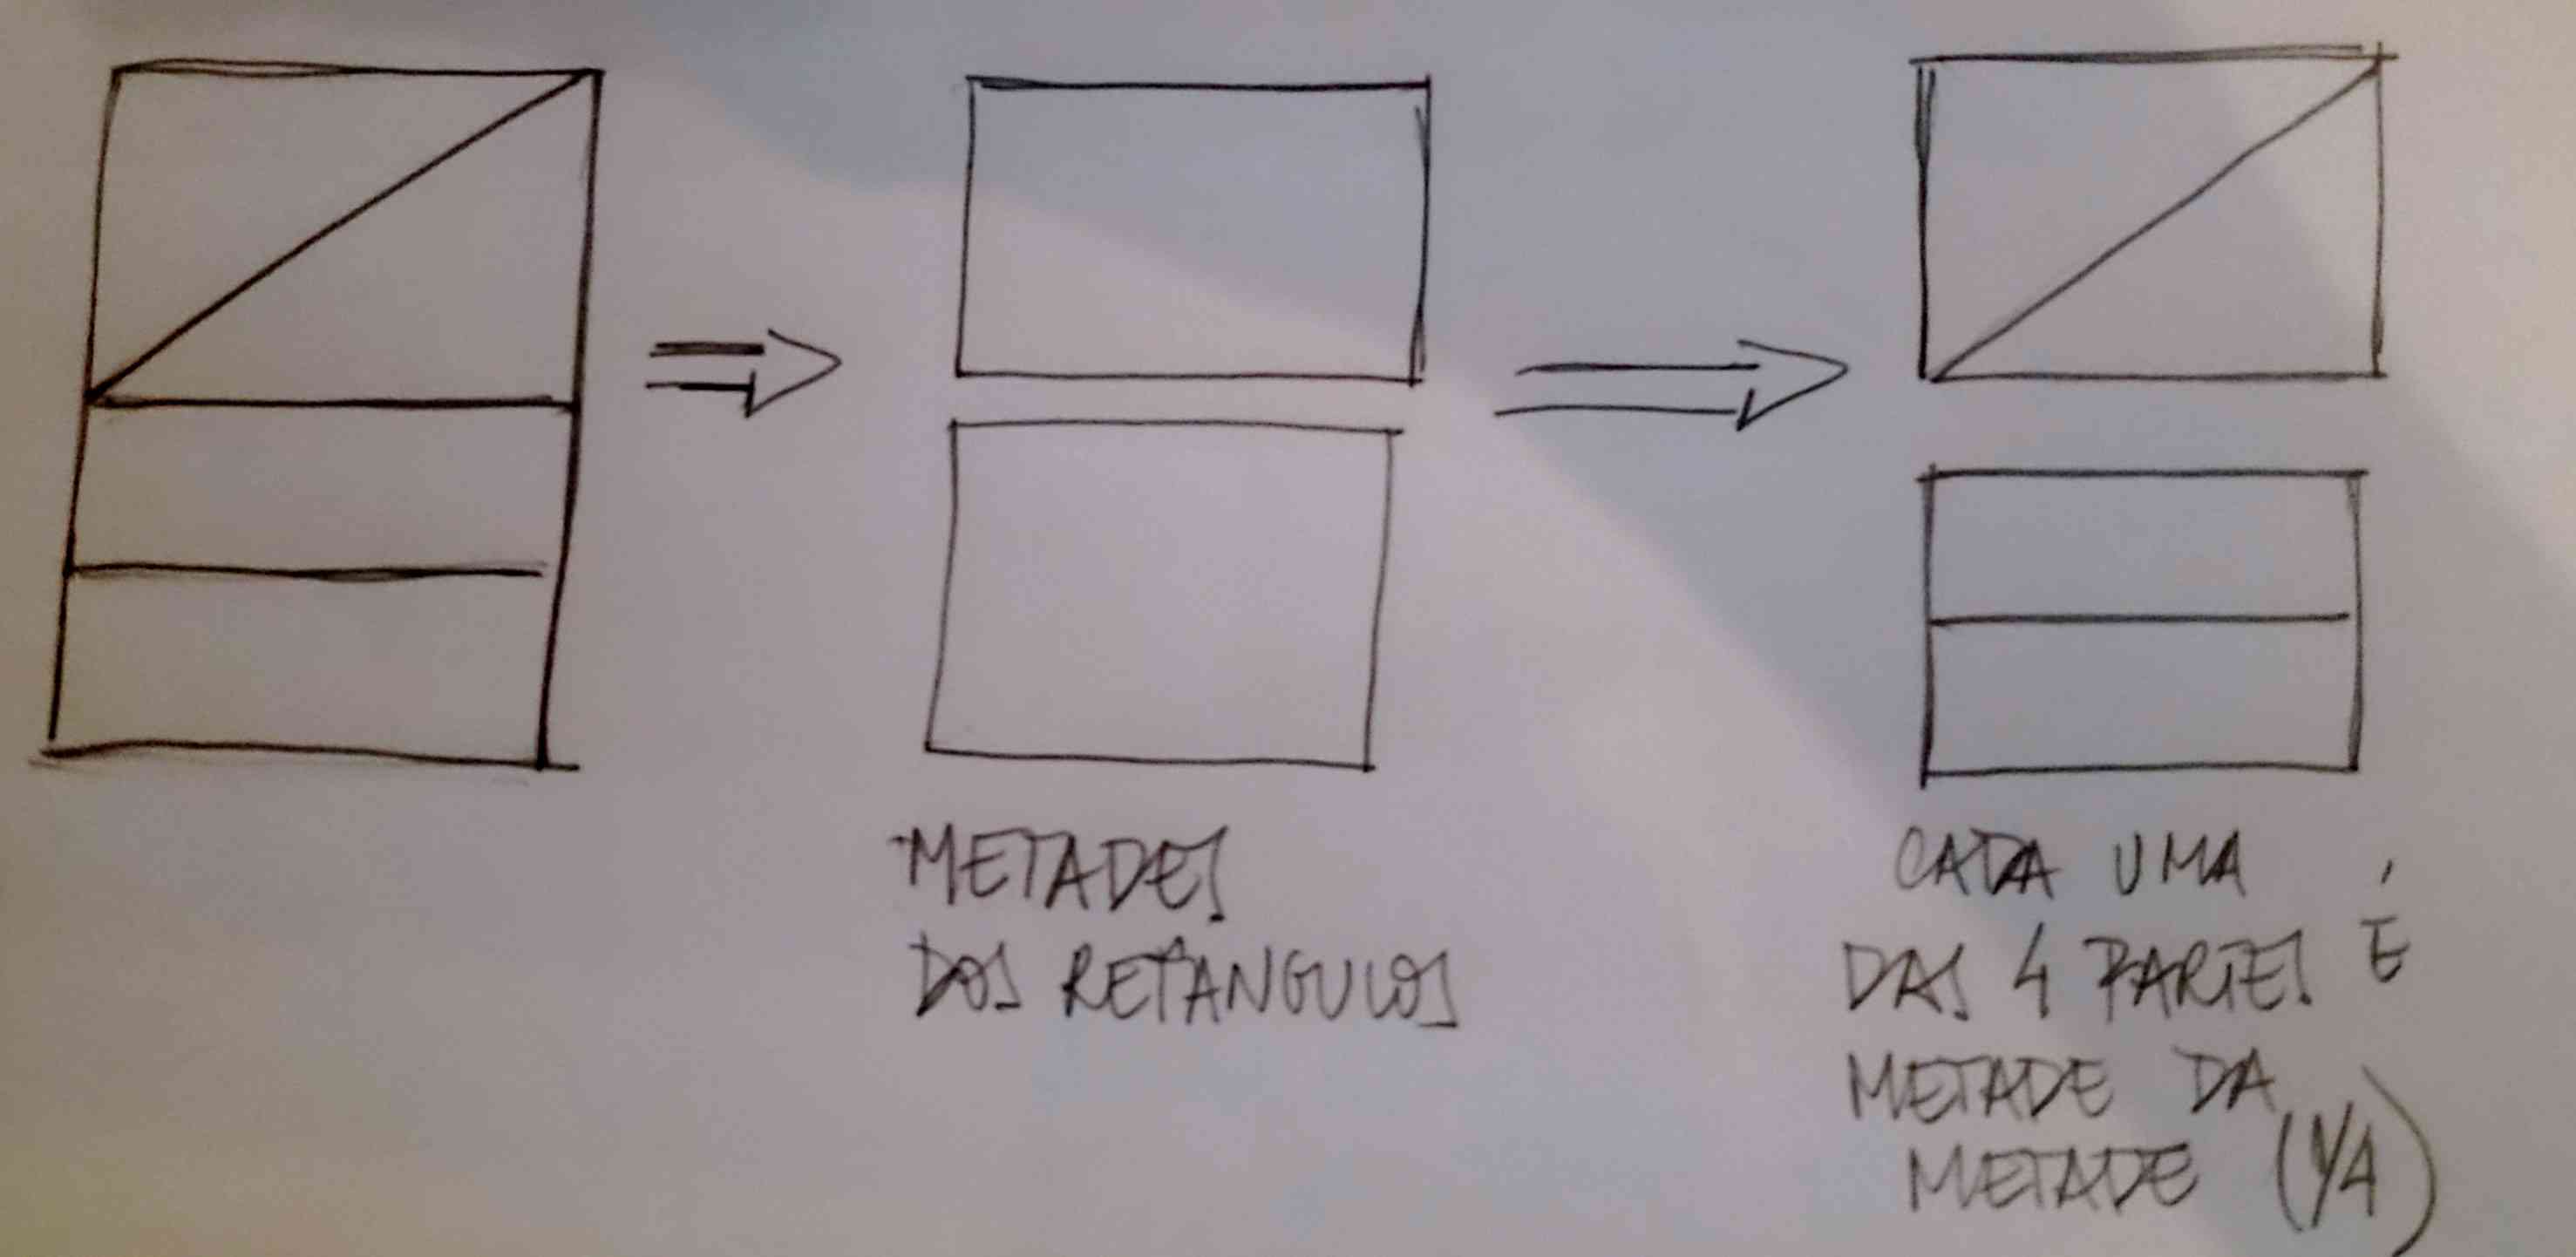 METADES
DOS RETÂNGULOS
CADA UMA
DAS 4 PARTES É
METADE DA
METADE (1/4)